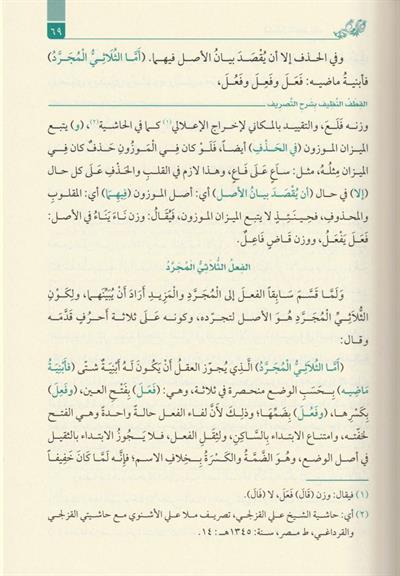 ٦٩
وفي الحذف إلا أن يُقْصَدَ بيانُ الأصل فيهما. (أَمَّا الثُّلَاثِيُّ الْمُجَرَّدُ)
فأبنيةُ ماضيه: فَعَلَ وفَعِلَ وفَعُلَ،
القطف النَّظيف بشرح التَّصريف
وزنه فَلَعَ، والتقييد بالمكاني لإخراج الإعلالي(١) كما في الحاشية(٢)، (و) يتبع
الميزان الموزون (في الحَذْفِ) أيضاً، فَلَوْ كَان فِي الْمَوْزُونِ حَذفٌ كانَ فِي
الميزان مِثلُهُ، مثل: ساعٍ عَلَى فَاعٍ، وهذا لازم في القلبِ والحَذْفِ عَلَى كل حال
(إلا) في حال (أن يُقْصَدَ بيانُ الأصل) أي: أصل الموزون (فِيهِمَا) أي: المقلوبِ
والمحذوفِ، فحِينَئِذٍ لا يتبع الميزان الموزون، فَيُقَالُ: وزن نَاءَ يَنَاءُ في الأصل:
فَعَلَ يَفْعَلُ، ووزن قَاضٍ فَاعِلٌ.
الفِعلُ الثُّلاثِيُّ المُجَرَّدُ
وَلَمَّا قَسَّمَ سَابِقاً الفعلَ إلى المُجَرَّدِ والمَزِيدِ أَرَادَ أَنْ يُبَيِّنَهما، ولِكَوْنِ
الثُّلَاثِيِّ المُجَرَّدِ هُوَ الأصل لتجرّده، وكونه عَلَى ثلاثة أحرفٍ قدَّمَهُ
وقال:
(أَمَّا الثُّلَاثِيُّ الْمُجَرَّدُ) الَّذِي يُجوّز العقلُ أَنْ يَكُونَ لَهُ أبْنِيَةٌ شتّى (فأَبْنِيَةُ
مَاضِيه) بِحَسَبِ الوضعِ منحصرة في ثلاثة، وهي: (فَعَلَ) بِفَتْحِ العين، (وفَعِلَ)
بِكَسْرِها، (وفَعُلَ) بِضَمِّهَا؛ وذلِكَ لأنَّ لفاء الفعل حالةً واحدةً وهي الفتح
لخفّته، وامتناع الابتداء بِالسَّاكِنِ، ولِثِقَلِ الفعل، فلا يَجُوزُ الابتداء بالثقيل
في أصل الوضع، وهُوَ الضَّمَّةُ والكَسْرَةُ بِخِلافِ الاسم؛ فإنَّه لَمَّا كَانَ خَفِيفاً
(١) فيقال: وزن (قَالَ) فَعَلَ، لا (فَالَ).
(٢) أي: حاشية الشيخ علي القزلجي، تصريف ملا علي الأشنوي مع حاشيتي القزلجي
والقرداغي، ط مصر، سنة: ١٣٤٥هـ: ١٤.